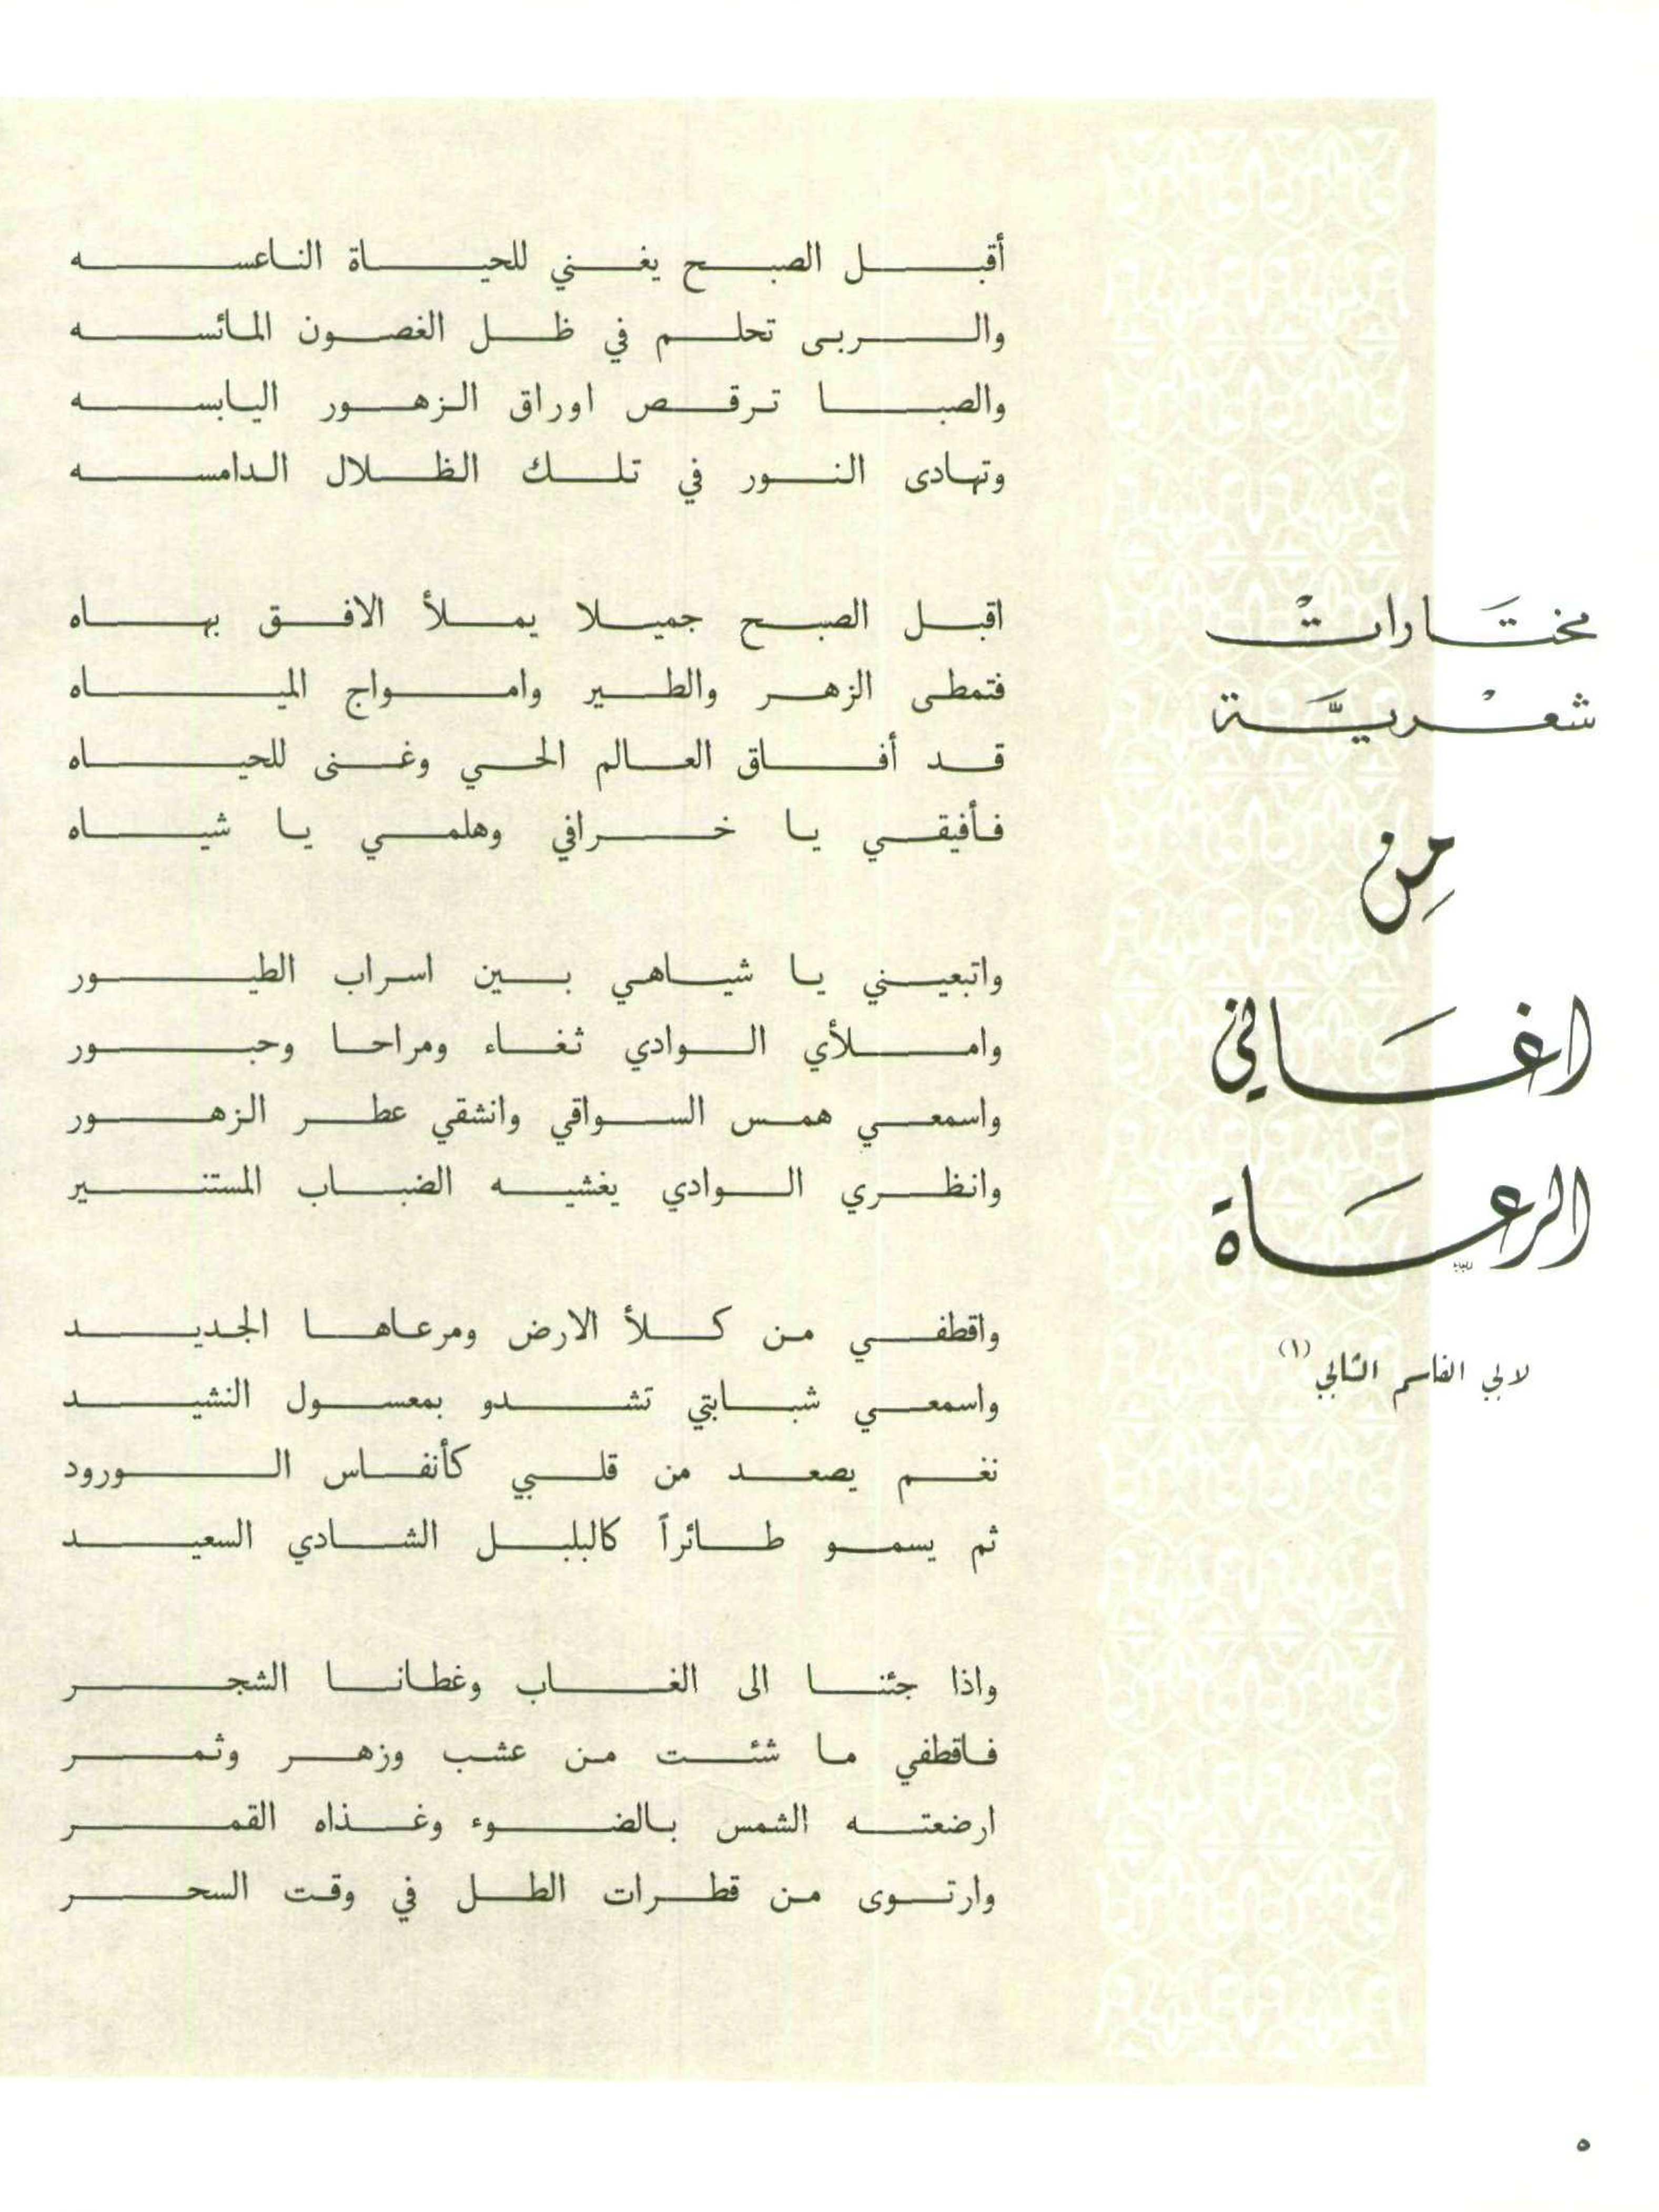 مختَاراتْ
شعْريَّة
مِن
اغَاني
الرعَاة
لابي القاسم الشابي (١)
أقبل الصبح يغني للحياة الناعسه
والربى تحلم في ظل الغصون المائسه
والصبا ترقص اوراق الزهور اليابسه
وتهادى النور في تلك الظلال الدامسه
اقبل الصبح جميلا يملأ الافق بهاه
فتمطى الزهر والطير وامواج المياه
قد أفاق العالم الحي وغنى للحياه
فأفيقي يا خرافي وهلمي يا شياه
واتبعيني يا شياهي بين اسراب الطيور
واملأي الوادي ثغاء ومراحا وحبور
واسمعي همس السواقي وانشقي عطر الزهور
وانظري الوادي يغشيه الضباب المستنير
واقطفي من كلأ الارض ومرعاها الجديد
واسمعي شبابتي تشدو بمعسول النشيد
نغم يصعد من قلبي كأنفاس الورود
ثم يسمو طائراً كالبلبل الشادي السعيد
واذا جئنا الى الغاب وغطانا الشجر
فاقطفي ما شئت من عشب وزهر وثمر
ارضعته الشمس بالضوء وغذاه القمر
وارتوى من قطرات الطل في وقت السحر
٥